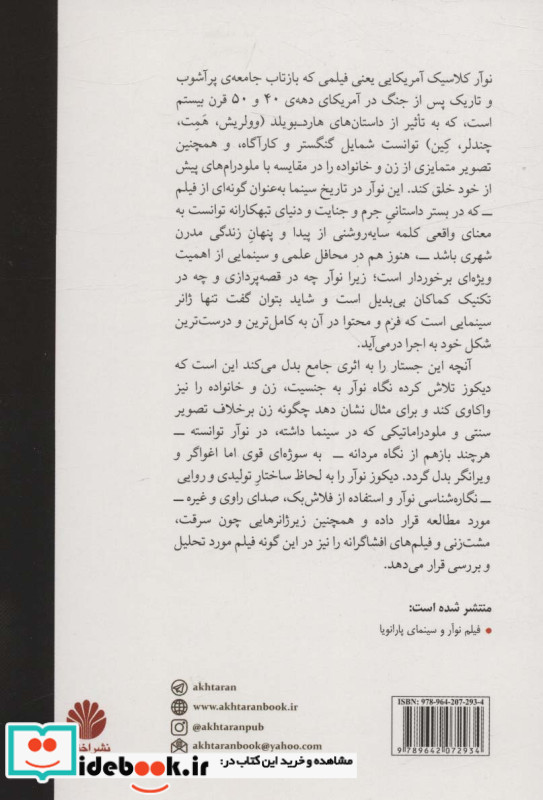 نوآر کلاسیک آمریکایی یعنی فیلمی که بازتاب جامعه‌ی پرآشوب
و تاریک پس از جنگ در آمریکای دهه‌ی ۴۰ و ۵۰ قرن بیستم
است، که به تأثیر از داستان‌های هاردـبویلد (وولریش، هَمِت،
چندلر، کِین) توانست شمایل گنگستر و کارآگاه، و همچنین
تصویر متمایزی از زن و خانواده را در مقایسه با ملودرام‌های پیش
از خود خلق کند. این نوآر در تاریخ سینما به‌عنوان گونه‌ای از فیلم
ـــ که در بستر داستانیِ جرم و جنایت و دنیای تبهکارانه توانست به
معنای واقعی کلمه سایه‌روشنی از پیدا و پنهانِ زندگی مدرن
شهری باشد ـــ، هنوز هم در محافل علمی و سینمایی از اهمیت
ویژه‌ای برخوردار است؛ زیرا نوآر چه در قصه‌پردازی و چه در
تکنیک کماکان بی‌بدیل است و شاید بتوان گفت تنها ژانر
سینمایی است که فرم و محتوا در آن به کامل‌ترین و درست‌ترین
شکل خود به اجرا درمی‌آید.
آنچه این جستار را به اثری جامع بدل می‌کند این است که
دیکوز تلاش کرده نگاه نوآر به جنسیت، زن و خانواده را نیز
واکاوی کند و برای مثال نشان دهد چگونه زن برخلاف تصویر
سنتی و ملودراماتیکی که در سینما داشته، در نوآر توانسته ـــ
هرچند بازهم از نگاه مردانه ـــ به سوژه‌ای قوی اما اغواگر و
ویرانگر بدل گردد. دیکوز نوآر را به لحاظ ساختارِ تولیدی و روایی
ـــ نگاره‌شناسی نوآر و استفاده از فلاش‌بک، صدای راوی و غیره ـــ
مورد مطالعه قرار داده و همچنین زیرژانرهایی چون سرقت،
مشت‌زنی و فیلم‌های افشاگرانه را نیز در این گونه فیلم مورد تحلیل
و بررسی قرار می‌دهد.
منتشر شده است:
● فیلم نوآر و سینمای پارانویا
akhtaran
www.akhtaranbook.ir
@akhtaranpub
akhtaranbook@yahoo.com
ISBN: 978-964-207-293-4
9 789642 072934
نشر
مشاهده و خرید این کتاب در:
idebook.ir